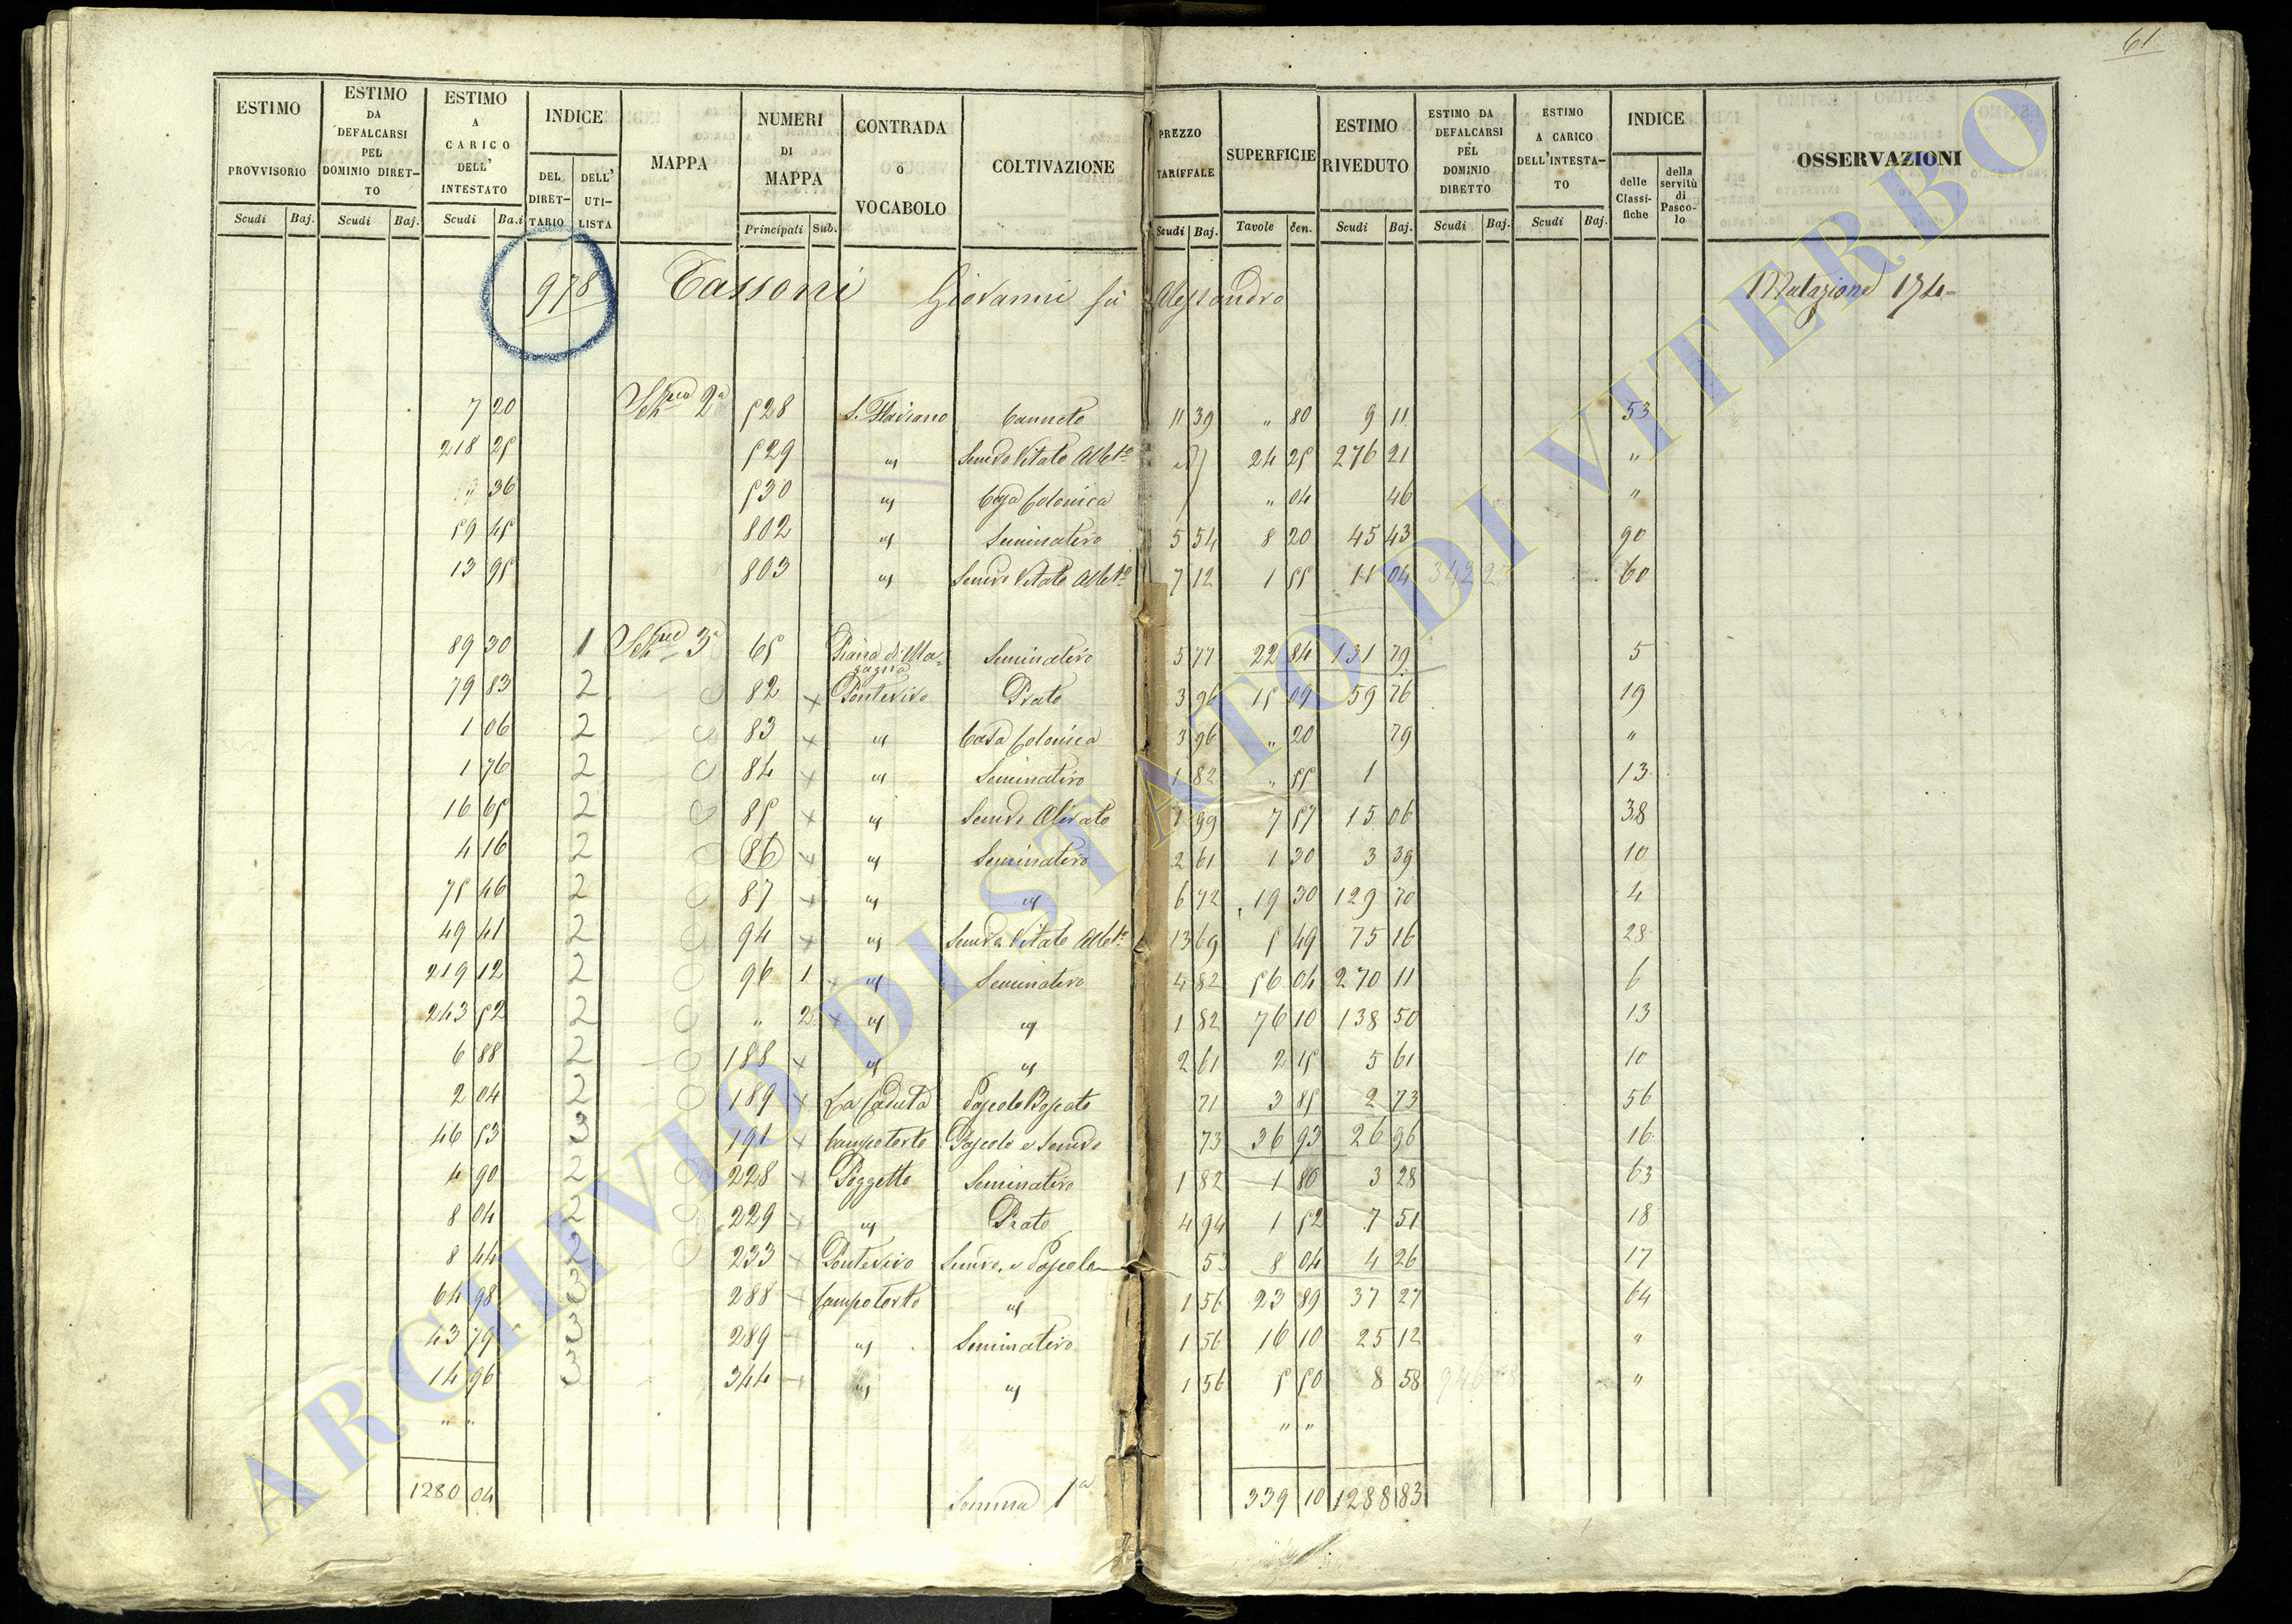 61
ESTIMO PROVVISORIO
Scudi Baj.
ESTIMO DA DEFALCARSI PEL DOMINIO DIRET-TO
Scudi Baj.
ESTIMO A CARICO DELL' INTESTATO
Scudi Ba.i
INDICE
DEL DIRET-TARIO
DELL' UTI-LISTA
MAPPA
NUMERI DI MAPPA
Principali Sub.
CONTRADA o VOCABOLO
COLTIVAZIONE
PREZZO TARIFFALE
Scudi Baj.
SUPERFICIE
Tavole Cen.
ESTIMO RIVEDUTO
Scudi Baj.
ESTIMO DA DEFALCARSI PEL DOMINIO DIRETTO
Scudi Baj.
ESTIMO A CARICO DELL'INTESTA-TO
Scudi Baj.
INDICE
delle Classi-fiche
della servitù di Pasco-lo
OSSERVAZIONI
978 Tassoni Giovanni fu Alessandro Mutazione 174
7 20 2a 528 S. Flaviano Canneto 11 39 " 80 9 11 53
218 25 529 " Semvo Vitato Albto 24 25 276 21 "
" 36 530 " Casa Colonica " 04 46 "
59 45 802 " Seminativo 5 54 8 20 45 43 90
13 95 803 " Semvo Vitato Albto 7 12 1 55 11 04 60
89 30 1 3a 65 Piana di Magagna Seminativo 5 77 22 84 131 79 5
79 83 2 82 x Pontevivo Prato 3 96 15 09 59 76 19
1 06 2 83 x " Casa Colonica 3 96 " 20 79 "
1 76 2 84 x " Seminativo 1 82 " 55 1 13
16 65 2 85 x " Semvo Olivato 1 99 7 57 15 06 38
4 16 2 86 x " Seminativo 2 61 1 30 3 39 10
75 46 2 87 x " " 6 72 19 30 129 70 4
49 41 2 94 x " Semvo Vitato Albto 13 69 5 49 75 16 28
219 12 2 96 1 x " Seminativo 4 82 56 04 270 11 6
243 52 2 " 2 x " " 1 82 76 10 138 50 13
6 88 2 188 x " " 2 61 2 15 5 61 10
2 04 2 189 x La Caduta Pascolo Boscato 71 3 85 2 73 56
46 53 3 191 x Campotorto Pascolo e Semvo 73 36 93 26 96 16
4 90 2 228 x Poggetto Seminativo 1 82 1 80 3 28 63
8 04 2 229 x " Prato 4 94 1 52 7 51 18
8 44 2 233 x Pontevivo Semvo. e Pascolo 53 8 04 4 26 17
64 98 3 288 x Campotorto " 1 56 23 89 37 27 64
43 79 3 289 x " Seminativo 1 56 16 10 25 12 "
14 96 3 344 x " " 1 56 5 50 8 58 "
" " " "
1280 04 Somma 1a 339 10 1288 83
ARCHIVIO DI STATO DI VITERBO